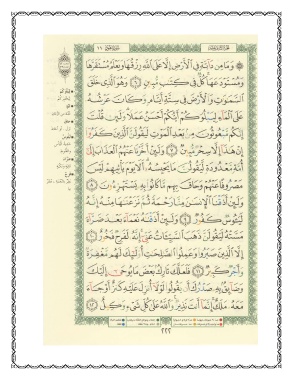 وَمَا مِن دَآبَّةٍ فِي ٱلۡأَرۡضِ إِلَّا عَلَى ٱللَّهِ رِزۡقُهَا وَيَعۡلَمُ مُسۡتَقَرَّهَا
وَمُسۡتَوۡدَعَهَاۚ كُلّٞ فِي كِتَٰبٖ مُّبِينٖ ٦ وَهُوَ ٱلَّذِي خَلَقَ
ٱلسَّمَٰوَٰتِ وَٱلۡأَرۡضَ فِي سِتَّةِ أَيَّامٖ وَكَانَ عَرۡشُهُۥ
عَلَى ٱلۡمَآءِ لِيَبۡلُوَكُمۡ أَيُّكُمۡ أَحۡسَنُ عَمَلٗاۗ وَلَئِن قُلۡتَ
إِنَّكُم مَّبۡعُوثُونَ مِنۢ بَعۡدِ ٱلۡمَوۡتِ لَيَقُولَنَّ ٱلَّذِينَ كَفَرُوٓاْ
إِنۡ هَٰذَآ إِلَّا سِحۡرٞ مُّبِينٞ ٧ وَلَئِنۡ أَخَّرۡنَا عَنۡهُمُ ٱلۡعَذَابَ إِلَىٰٓ
أُمَّةٖ مَّعۡدُودَةٖ لَّيَقُولُنَّ مَا يَحۡبِسُهُۥٓۗ أَلَا يَوۡمَ يَأۡتِيهِمۡ لَيۡسَ
مَصۡرُوفًا عَنۡهُمۡ وَحَاقَ بِهِم مَّا كَانُواْ بِهِۦ يَسۡتَهۡزِءُونَ ٨
وَلَئِنۡ أَذَقۡنَا ٱلۡإِنسَٰنَ مِنَّا رَحۡمَةٗ ثُمَّ نَزَعۡنَٰهَا مِنۡهُ إِنَّهُۥ
لَيَـُٔوسٞ كَفُورٞ ٩ وَلَئِنۡ أَذَقۡنَٰهُ نَعۡمَآءَ بَعۡدَ ضَرَّآءَ
مَسَّتۡهُ لَيَقُولَنَّ ذَهَبَ ٱلسَّيِّـَٔاتُ عَنِّيٓۚ إِنَّهُۥ لَفَرِحٞ فَخُورٌ ١٠
إِلَّا ٱلَّذِينَ صَبَرُواْ وَعَمِلُواْ ٱلصَّٰلِحَٰتِ أُوْلَٰٓئِكَ لَهُم مَّغۡفِرَةٞ
وَأَجۡرٞ كَبِيرٞ ١١ فَلَعَلَّكَ تَارِكُۢ بَعۡضَ مَا يُوحَىٰٓ إِلَيۡكَ
وَضَآئِقُۢ بِهِۦ صَدۡرُكَ أَن يَقُولُواْ لَوۡلَآ أُنزِلَ عَلَيۡهِ كَنزٌ أَوۡ جَآءَ
مَعَهُۥ مَلَكٌۚ إِنَّمَآ أَنتَ نَذِيرٞۚ وَٱللَّهُ عَلَىٰ كُلِّ شَيۡءٖ وَكِيلٌ ١٢
٢٢٢